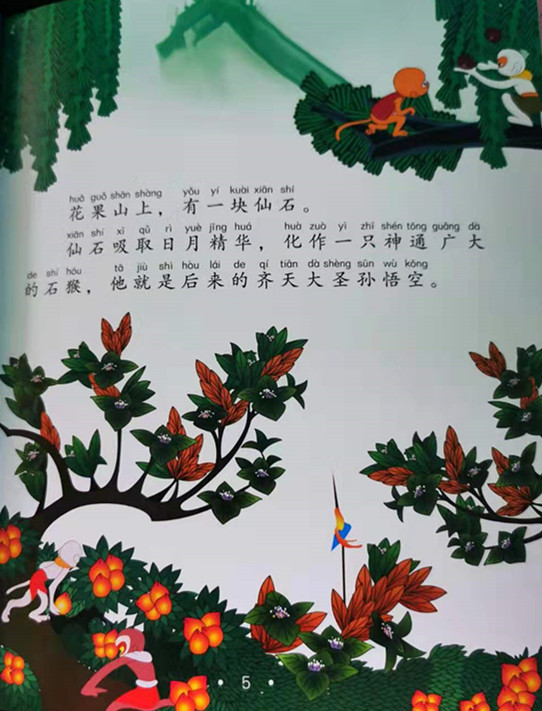 huā guǒ shān shàng yǒu yí kuài xiān shí
花果山上，有一块仙石。
xiān shí xī qǔ rì yuè jīng huá huà zuò yì zhī shén tōng guǎng dà
仙石吸取日月精华，化作一只神通广大
de shí hóu tā jiù shì hòu lái de qí tiān dà shèng sūn wù kōng
的石猴，他就是后来的齐天大圣孙悟空。
· 5 ·